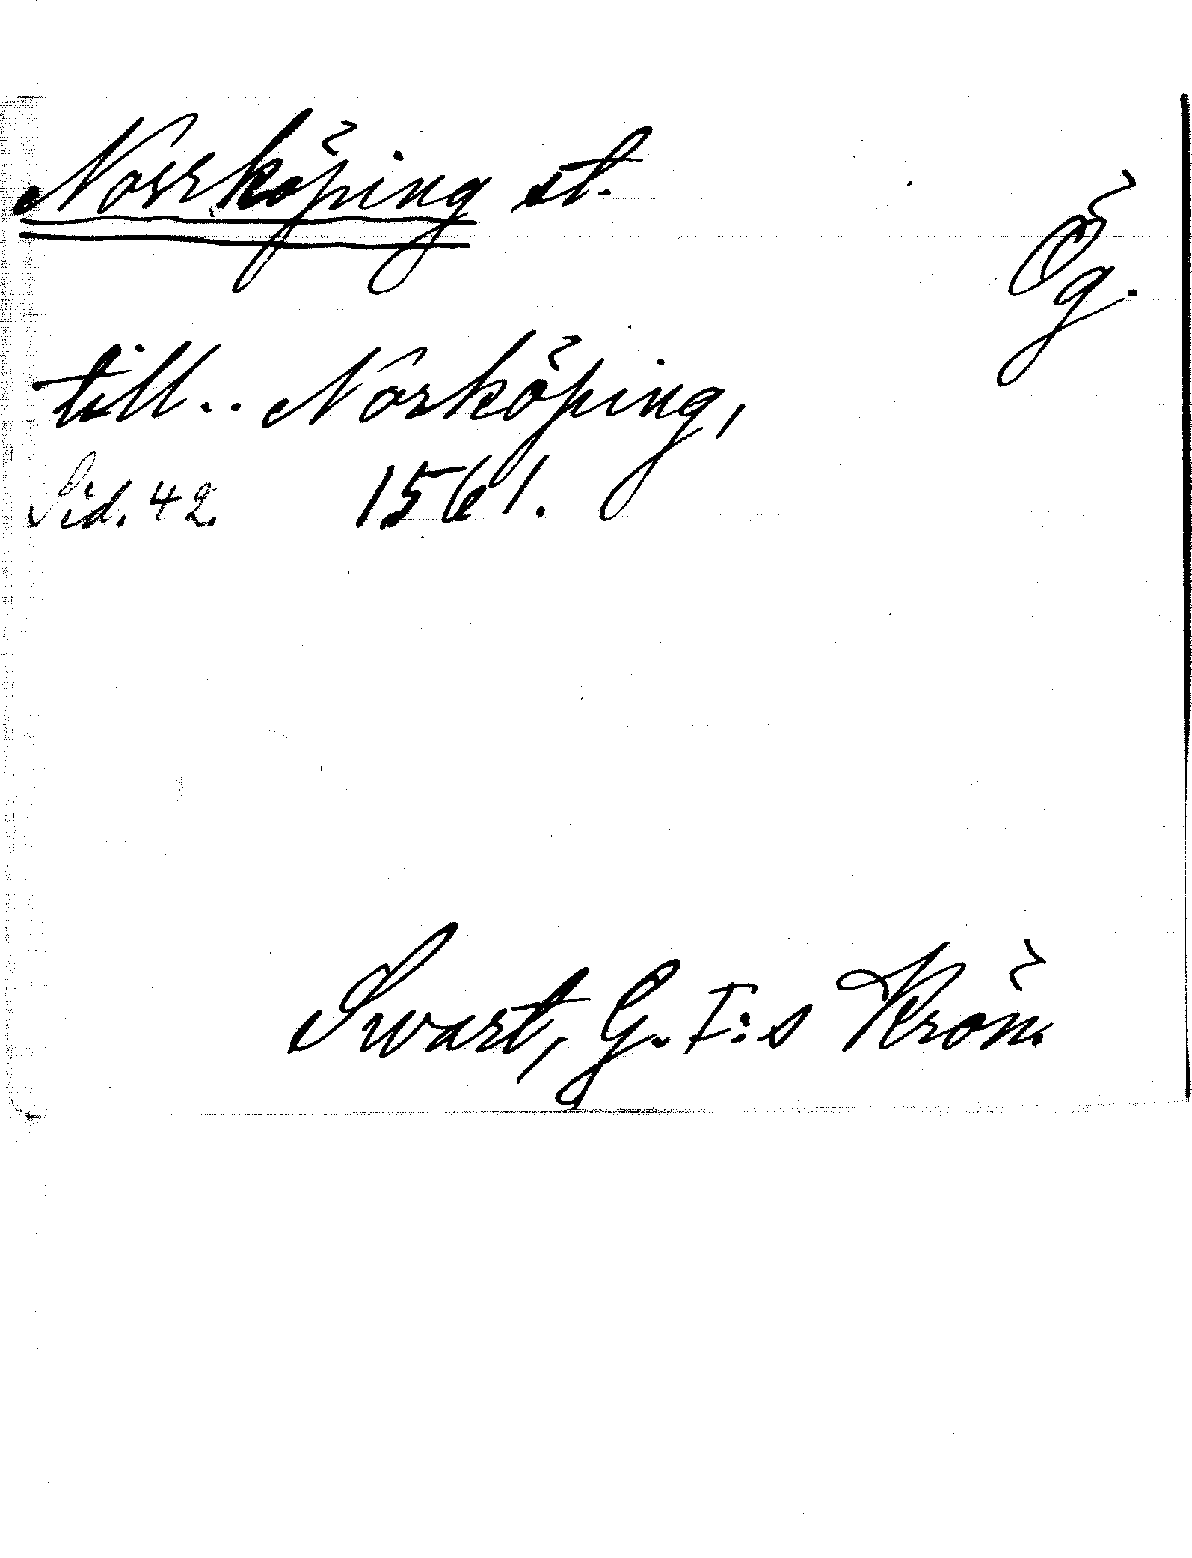 Norrköping st.
Ög.
till.. Norköping,
Sid. 42. 1561.
Swart, G. I:s Krön.